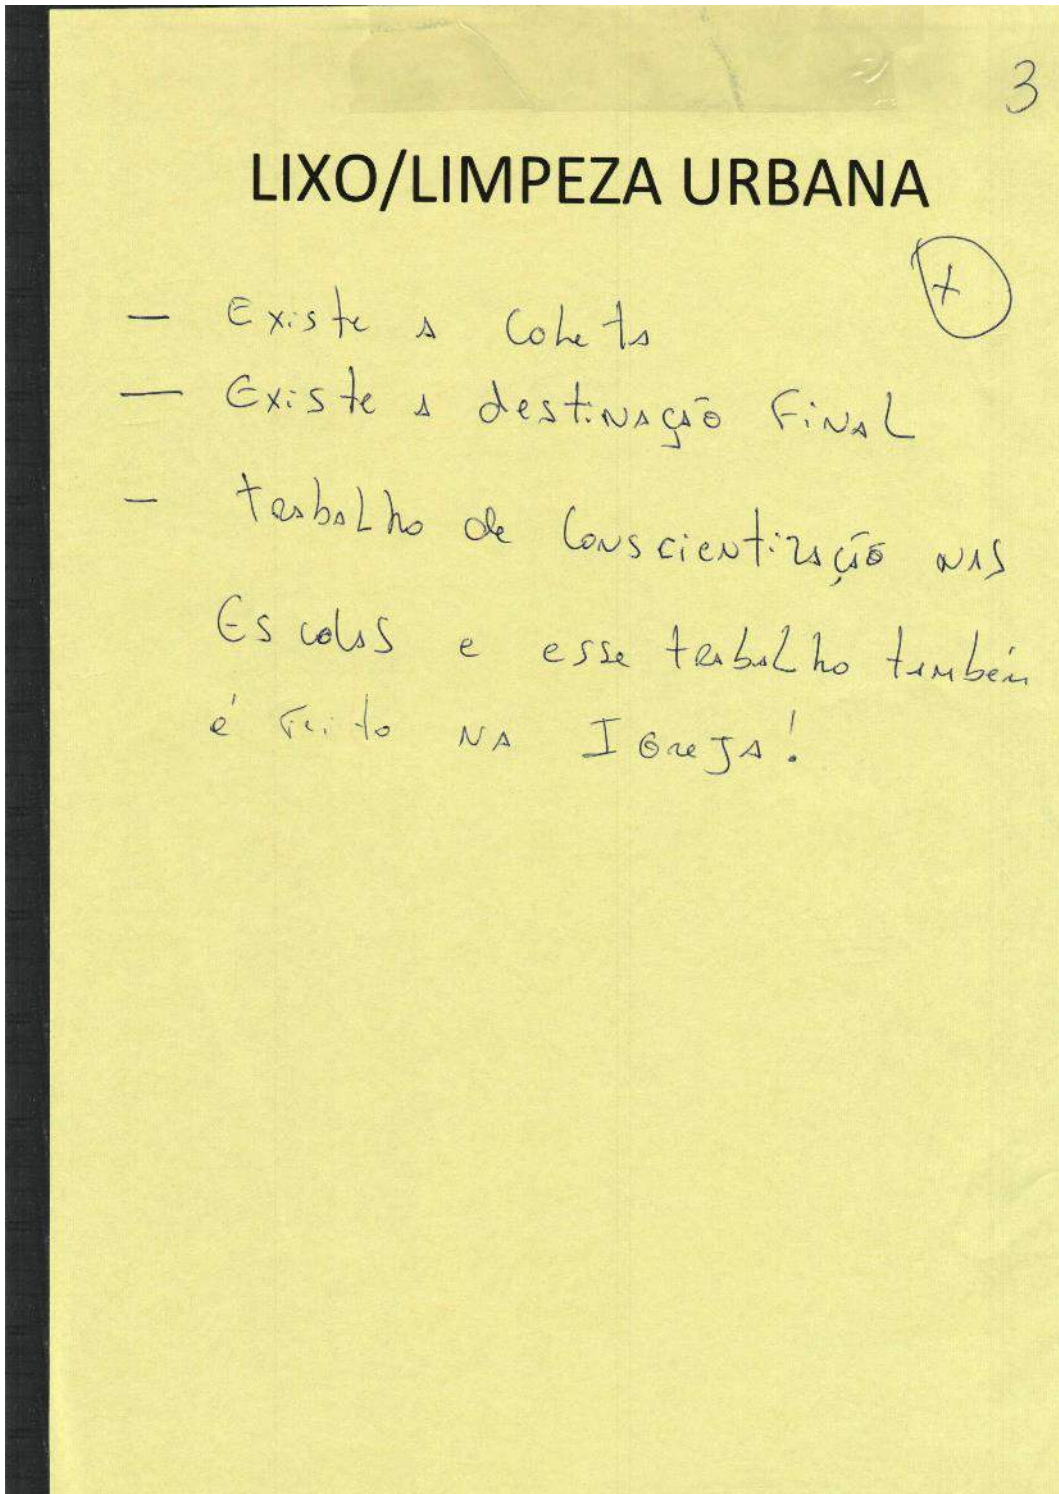 3
LIXO/LIMPEZA URBANA
+
— Existe a Coleta
— Existe a destinação Final
- trabalho de Conscientização nas
Escolas e esse trabalho também
é feito na Igreja!